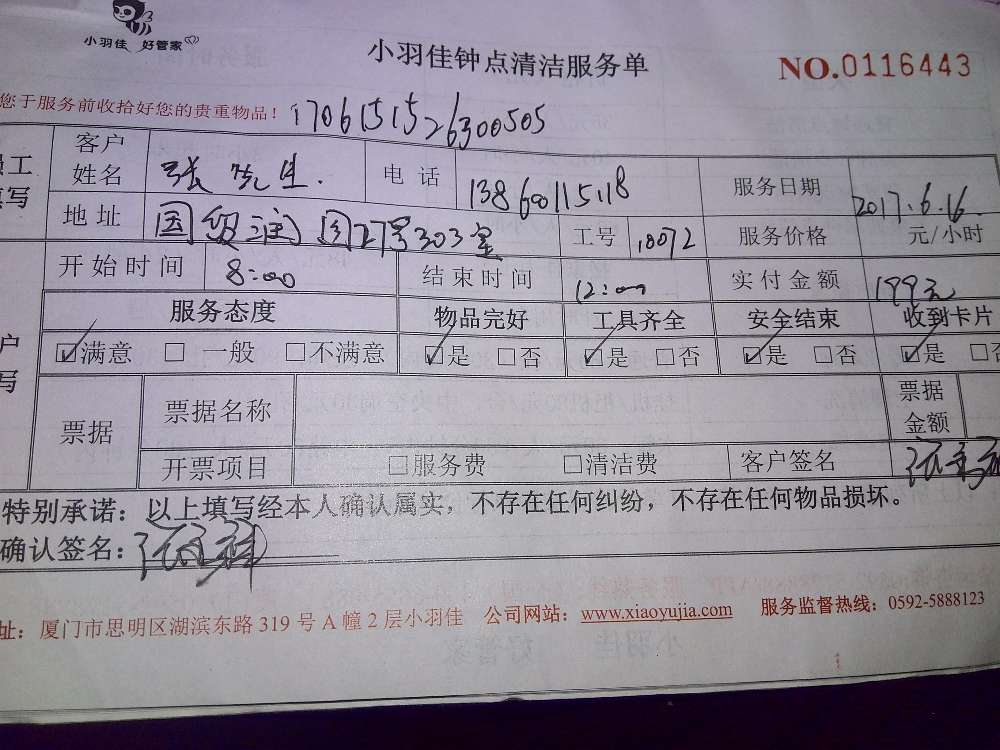 小羽佳 好管家
小羽佳钟点清洁服务单
NO.0116443
您于服务前收拾好您的贵重物品！ 1706151526300505
员工填写
客户姓名 张先生. 电话 13860115118 服务日期 2017.6.16.
地址 国贸润园27号303室 工号 18072 服务价格 元/小时
开始时间 8:00 结束时间 12:00 实付金额 199元
服务态度 物品完好 工具齐全 安全结束 收到卡片
☑满意 □一般 □不满意 ☑是 □否 ☑是 □否 ☑是 □否 ☑是 □否
户 写
票据 票据名称 票据金额
开票项目 □服务费 □清洁费 客户签名
特别承诺：以上填写经本人确认属实，不存在任何纠纷，不存在任何物品损坏。
确认签名：
址：厦门市思明区湖滨东路 319 号 A 幢 2 层小羽佳 公司网站：www.xiaoyujia.com 服务监督热线：0592-5888123